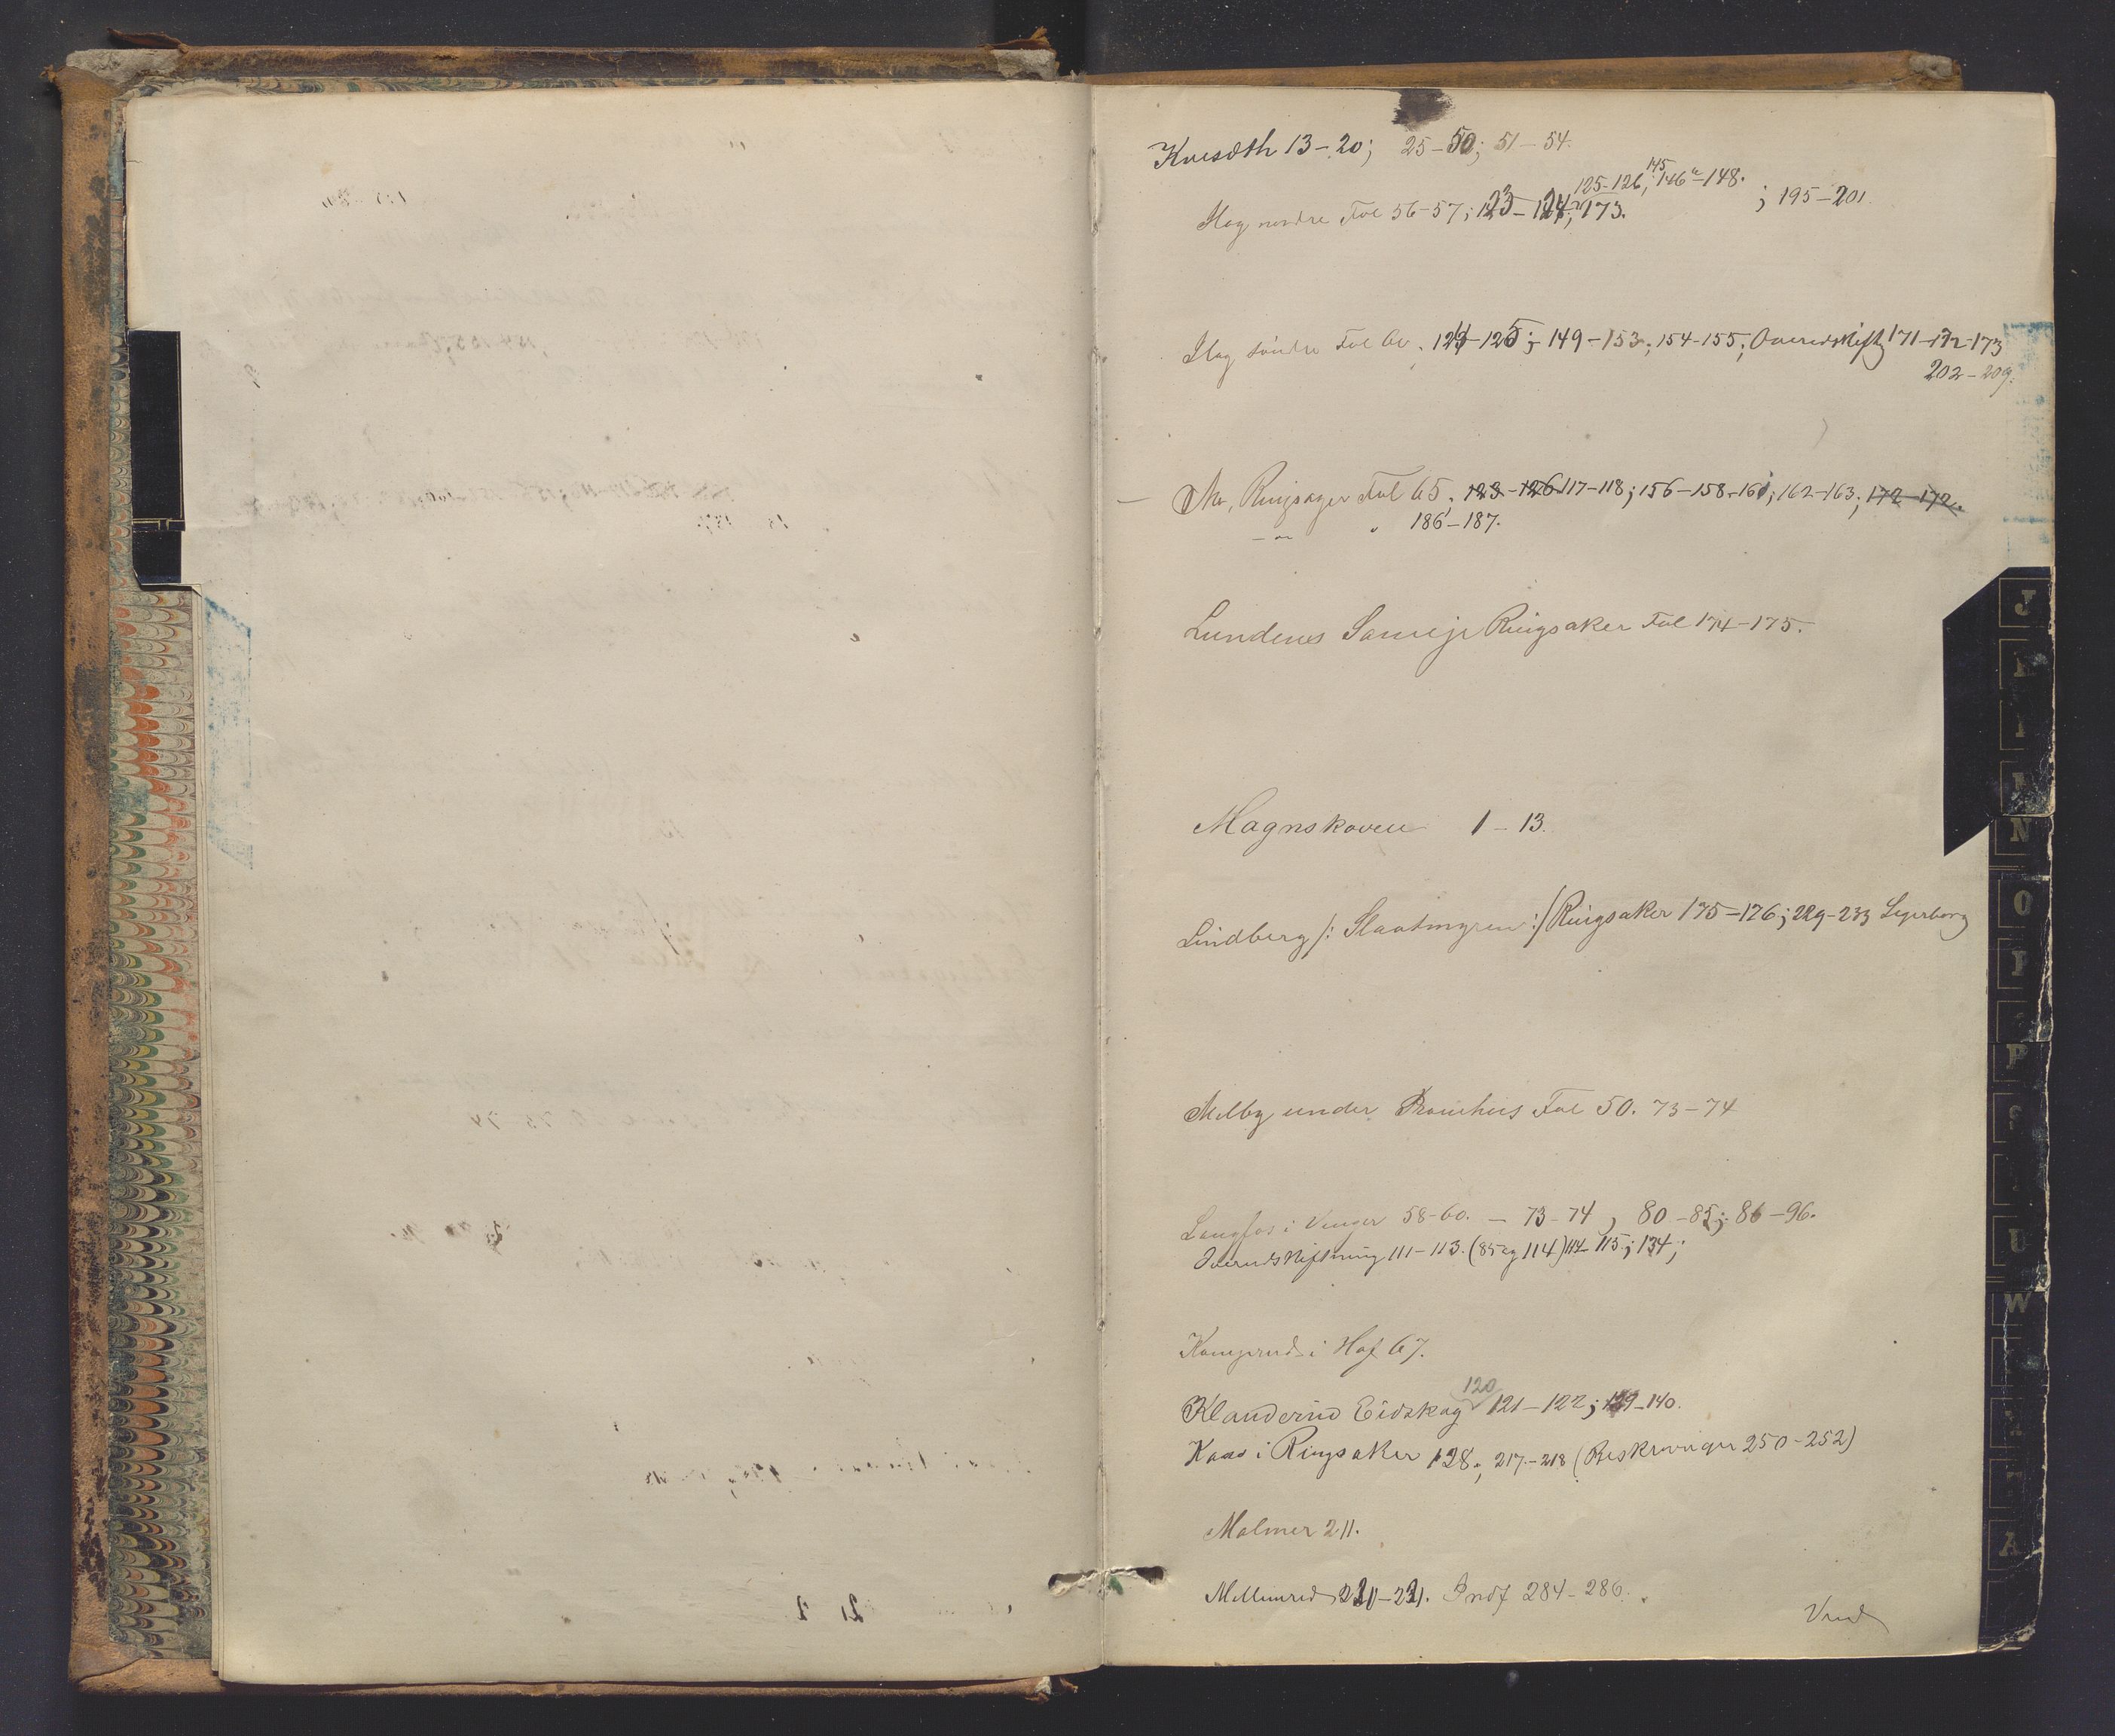 Kvesæth 13-20; 25-50; 51-54.
125-126; 145 146-148.
Hag nordre Fol 56-57; 123-124; 173. ; 195-201.
Hag søndre Fol 124-125; 149-153; 154-155; Overudskiftg 171-172-173
202-209.
Mo, Ringsager Fol 65; 123-126 117-118; 156-158-161; 162-163; 172-172.
" 186-187.
Lundens Sameje Ringsaker Fol 174-175.
Magnskoven 1-13.
Lindberg /: Slaatmyren :/ Ringsaker 175-176; 229-233
Melby under Fol 50. 73-74
Langfos i Vinger 58-60. - 73-74, 80-85; 86-96.
Overudskiftning 111-113. (85 og 114) 114-115; 134;
i Hof 67.
120
Klanderud Eidskog 121-122; 139-140.
Kaas i Ringsaker 128; 217-218 (Beskrivelser 250-252)
Malmer 211.
Mellemrud 220-221. Indf 284-286.
Vend
J
N
O
P
U
W